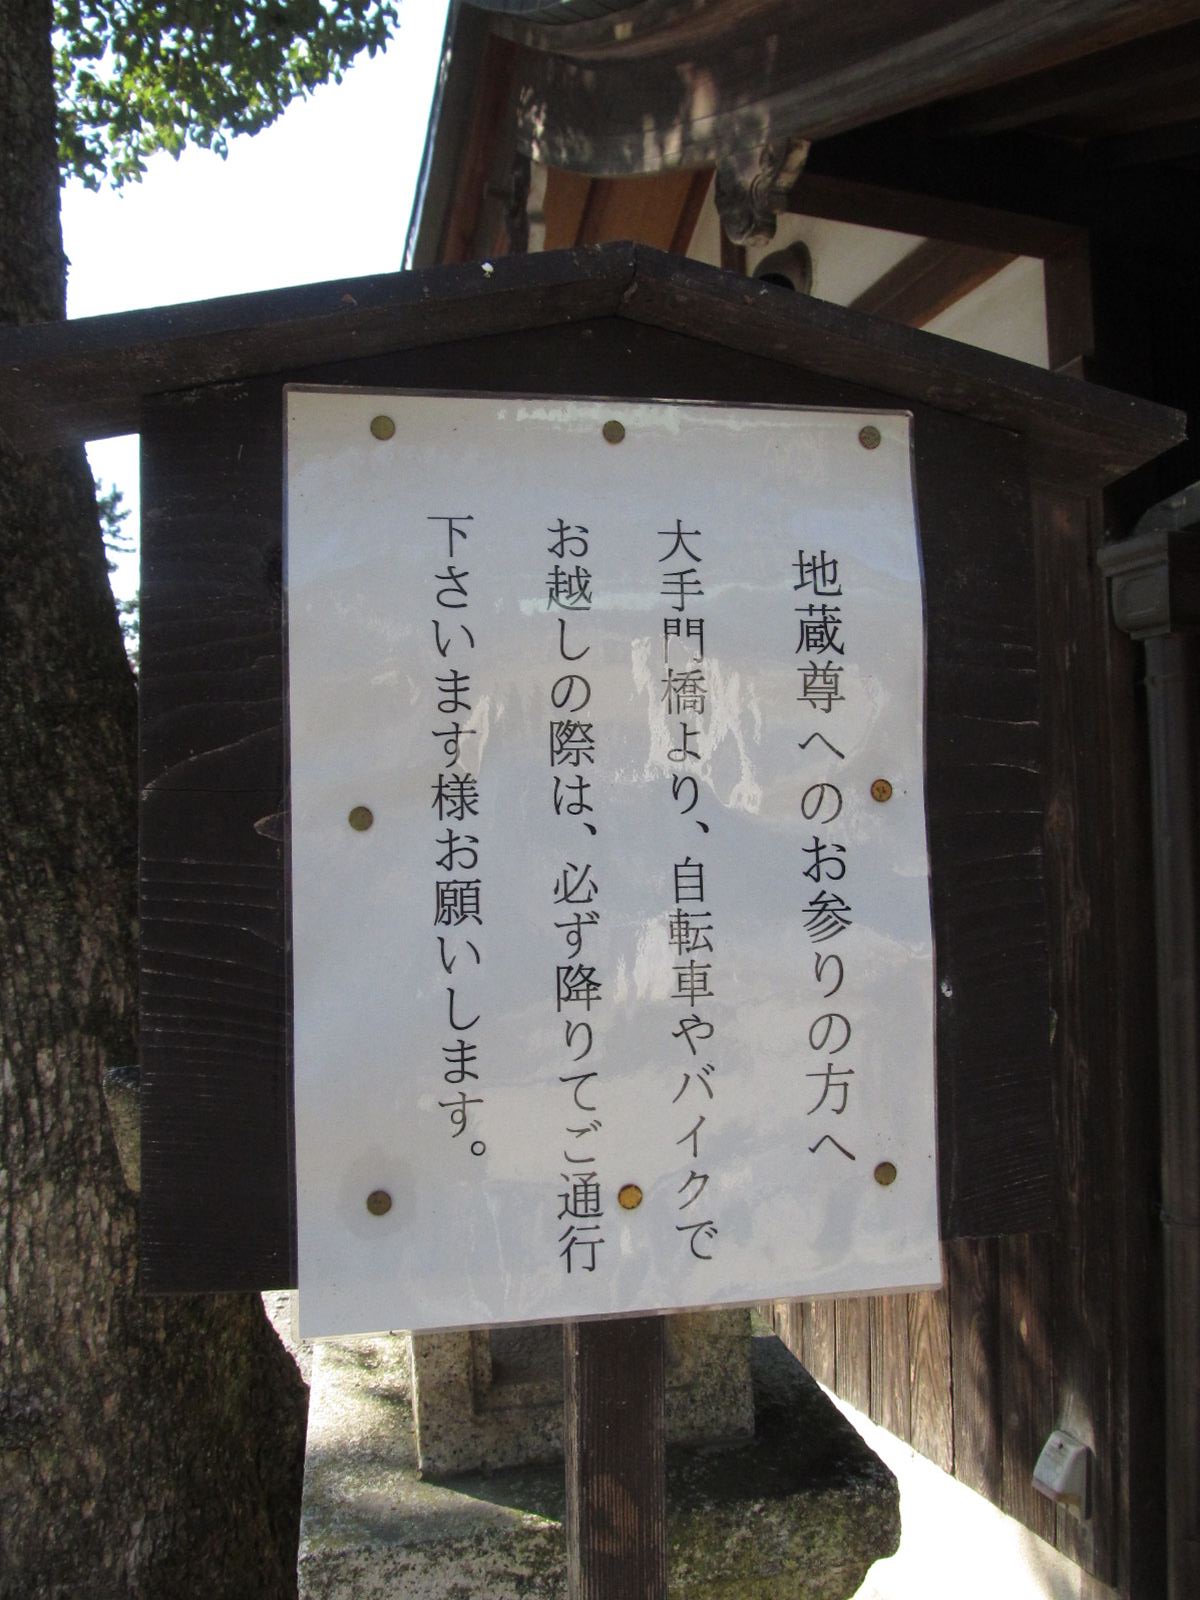 地蔵尊へのお参りの方へ
大手門橋より、自転車やバイクで
お越しの際は、必ず降りてご通行
下さいます様お願いします。